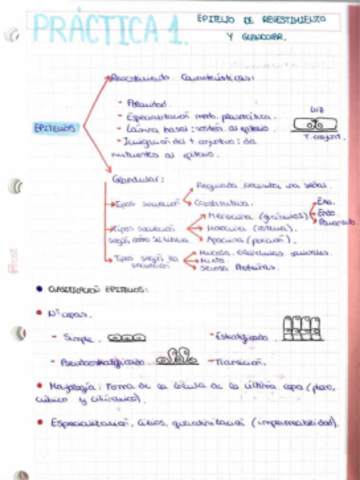 PRÁCTICA 1.
EPITELIO DE REVESTIMIENTO
Y GLANDULAR.
Revestimiento. Características:
- Polaridad
- Especialización memb. plasmática.
LUZ
EPITELIOS
- Lámina basal: sostén al epitelio.
T. conjunt.
- Inervación del t. conjuntivo: da
nutrientes al epitelio.
Glandular:
Regulada necesita una señal.
Tipos secreción
Constitutiva.
Exo.
Merocrina (gránulos)
Endo
Tipos secreción
Holocrina (entera).
Paracrina
según cómo se libera
Apocrina (porción).
Mucosa. Glándulas salivales.
Tipos según la
Mixta.
secreción
Serosa. Proteínas.
CLASIFICACIÓN EPITELIOS:
Nº capas.
- Simple.
- Estratificado.
- Pseudoestratificado.
- Transición.
Morfología: Forma de la célula de la última capa (plano,
cúbico y cilíndrico).
Especialización. Cilios, queratinización (impermeabilidad).